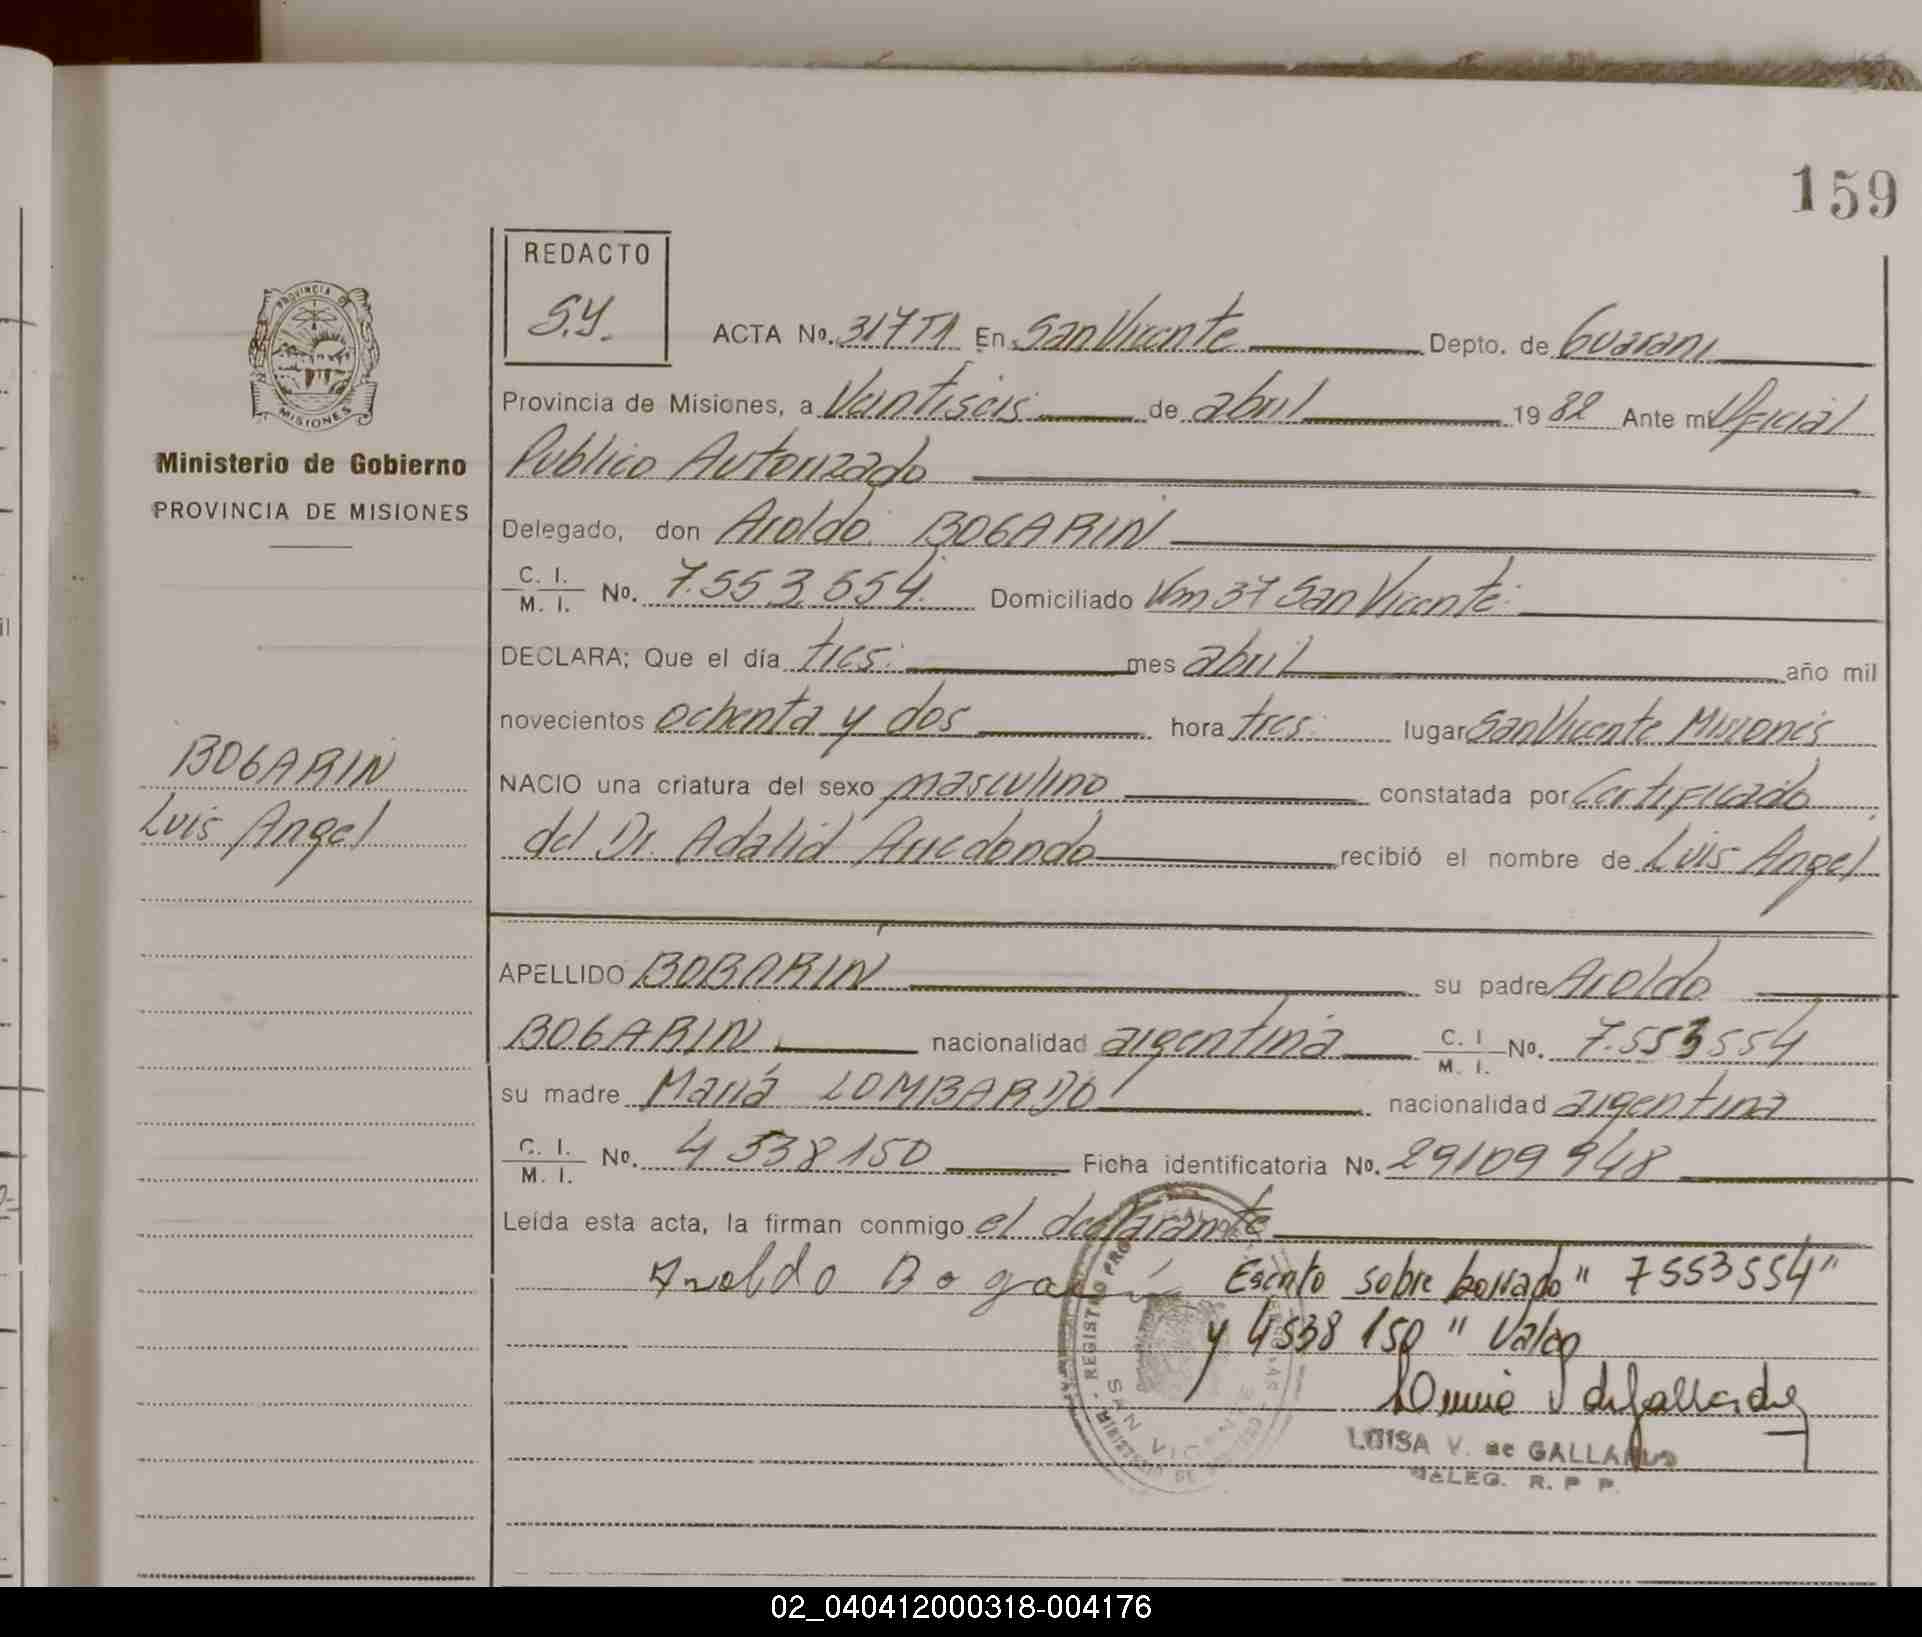 159
REDACTO
S.Y.
ACTA No. 317 T1 En San Vicente Depto. de Guarani
PROVINCIA DE MISIONES
Provincia de Misiones, a Veintiseis de abril 1982 Ante mi Oficial
Publico Autorizado
Ministerio de Gobierno
PROVINCIA DE MISIONES
Delegado, don Aroldo BOGARIN
C. I. M. I. No. 7.553.554. Domiciliado Km 37 San Vicente
DECLARA; Que el día tres mes abril año mil
novecientos ochenta y dos hora tres lugar San Vicente Misiones
BOGARIN
Luis Angel
NACIO una criatura del sexo masculino constatada por Certificado
del Dr. Adalid Arredondo recibió el nombre de Luis Angel
APELLIDO BOBARIN su padre Aroldo
BOGARIN nacionalidad argentina C. I. M. I. No. 7.553554
su madre Maria LOMBARDO nacionalidad argentina
C. I. M. I. No. 4538150 Ficha identificatoria No. 29109948
Leída esta acta, la firman conmigo el declarante
Aroldo Bogarín Escrito sobre borrado " 7553554"
y 4538150 " Valen
REGISTRO PRO
SAN VICENTE
LUISA V. de GALLARDO
DELEG. R. P. P.
02_040412000318-004176